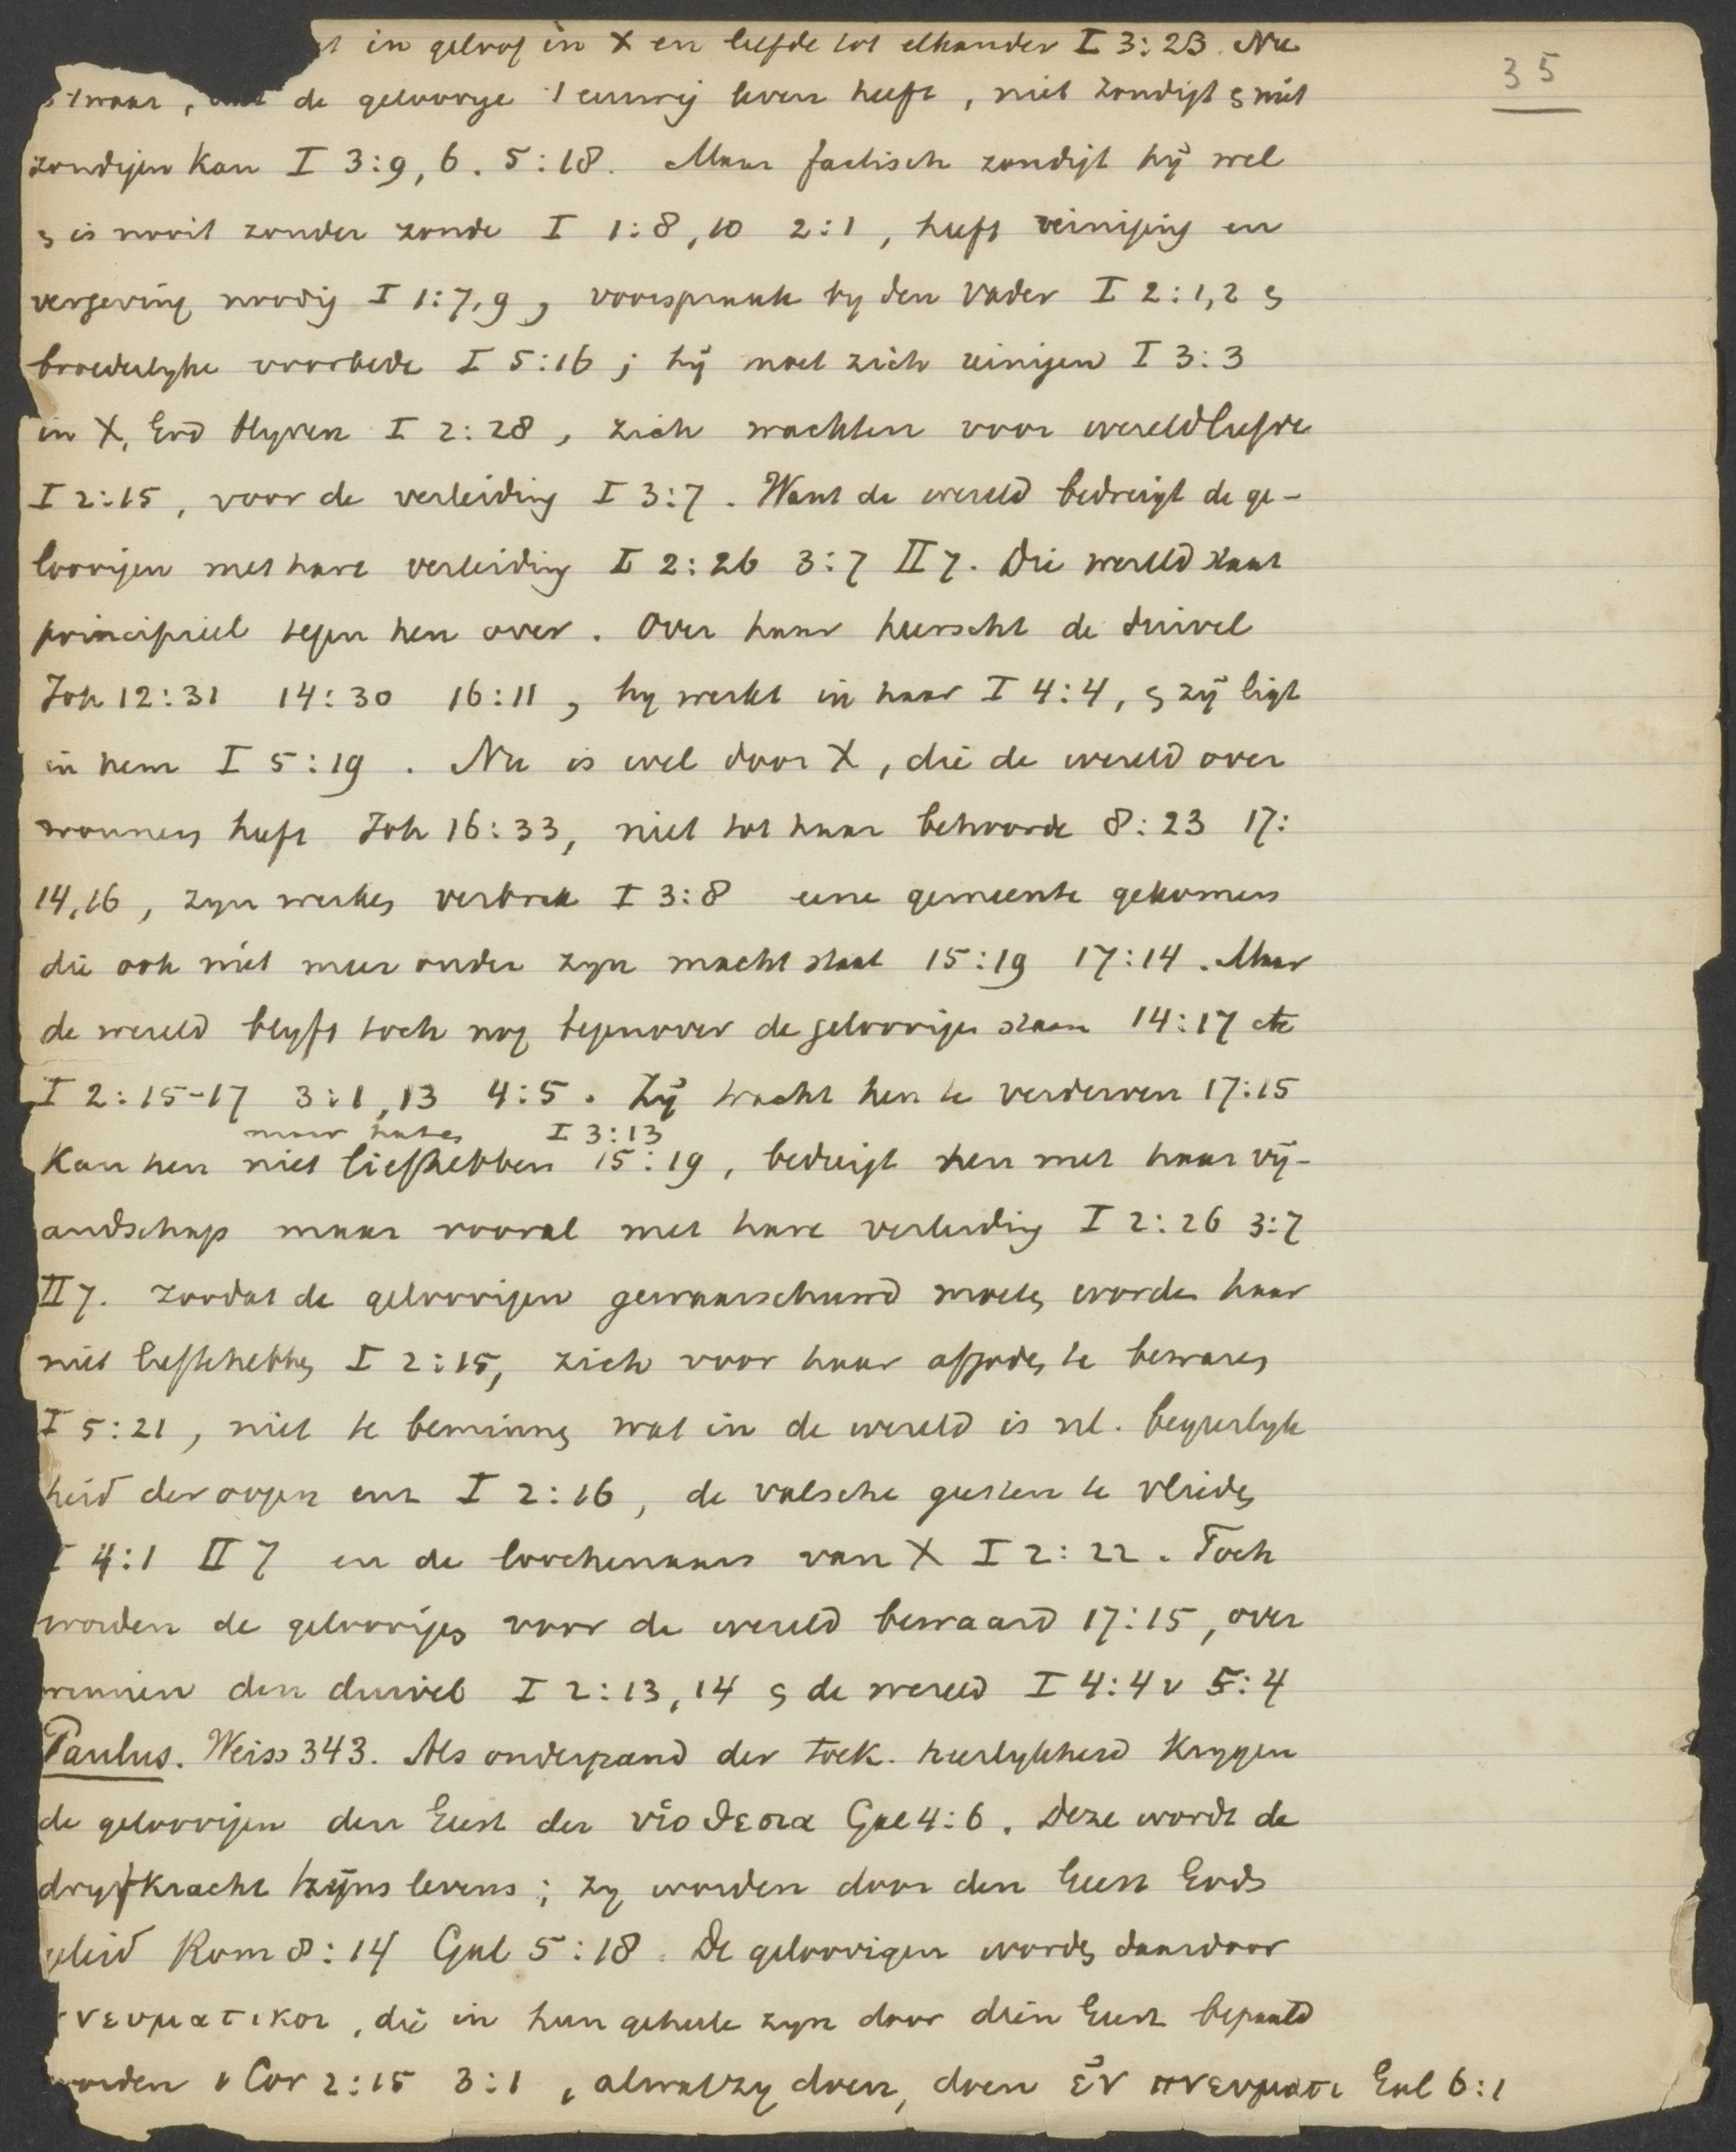 35
in geloof in X en liefde tot elkander I 3:23. Nu
waar, dat de geloovige 't eeuwig leven heeft, niet zondigt en niet
zondigen kan I 3:9, 6. 5:18. Maar factisch zondigt hij wel
en is nooit zonder zonde I 1:8, 10 2:1, heeft reiniging en
vergeving noodig I 1:7, 9, voorspraak by den Vader I 2:1,2 en
broederlyke voorbede I 5:16; hij moet zich reinigen I 3:3
in X, God blyven I 2:28, zich wachten voor wereldliefde
I 2:15, voor de verleiding I 3:7. Want de wereld bedreigt de ge-
loovigen met hare verleiding I 2:26 3:7 II 7. Die wereld staat
principieel tegen hen over. Over haar heerscht de duivel
Joh 12:31 14:30 16:11, hy werkt in haar I 4:4, en zij ligt
in hem I 5:19. Nu is wel door X, die de wereld over
wonnen heeft Joh 16:33, niet tot haar behoorde 8:23 17:
14,16, zyn werken verbrak I 3:8 eene gemeente gekomen
die ook niet meer onder zyn macht staat 15:19 17:14. Maar
de wereld blyft toch nog tegenover de geloovigen staan 14:17 etc
I 2:15-17 3:1, 13 4:5. Zij tracht hen te verderven 17:15
maar haten I 3:13
Kan hen niet liefhebben 15:19, bedreigt hen met haar vij-
andschap maar vooral met hare verleiding I 2:26 3:7
II 7. zoodat de geloovigen gewaarschuwd moeten worden haar
niet liefte hebben I 2:15, zich voor haar afgoden te bewaren
I 5:21, niet te beminnen wat in de wereld is nl. begeerlyk
heid der oogen enz I 2:16, de valsche geesten te vlieden
I 4:1 II 7 en de loochenaars van X I 2:22. Toch
worden de geloovigen voor de wereld bewaard 17:15, over
winnen den duivel I 2:13, 14 en de wereld I 4:4 v 5:4
Paulus. Weiss 343. Als onderpand der toek. heerlykheid krygen
de geloovigen den Geest der υἱοθεσια Gal 4:6. Deze wordt de
dryfkracht zijns levens; zy worden door den Geest Gods
geleid Rom 8:14 Gal 5:18. De geloovigen worden daardoor
πνευματικοι, die in hun geheele zyn door dien Geest bepaald
worden 1 Cor 2:15 3:1, al wat zy doen, doen ἐν πνευματι Gal 6:1